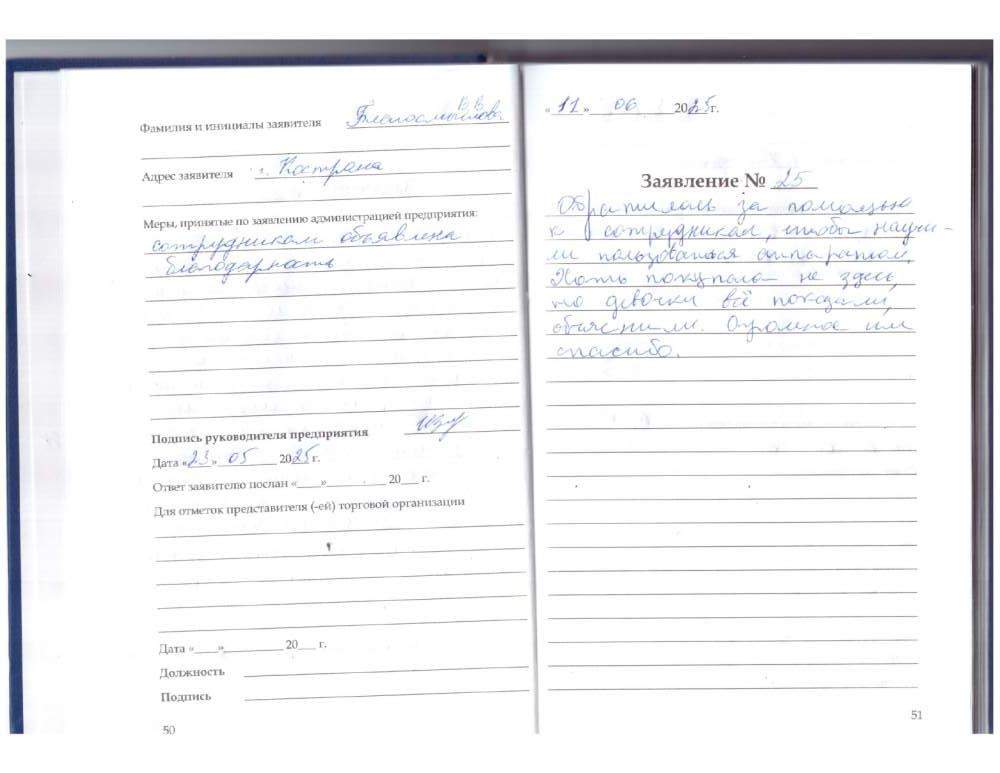 Фамилия и инициалы заявителя Благосмыслова В.В.
Адрес заявителя г. Кострома
Меры, принятые по заявлению администрацией предприятия:
сотрудникам объявлена
благодарность
Подпись руководителя предприятия
Дата «23» 05 2025г.
Ответ заявителю послан «___»__________ 20___ г.
Для отметок представителя (-ей) торговой организации
Дата «___»__________ 20___ г.
Должность
Подпись
50
«11» 06 2025г.
Заявление № 25
Обратилась за помощью
к сотрудникам, чтобы научи-
ли пользоваться аппаратом.
Хоть покупала не здесь,
но девочки всё показали,
объяснили. Огромное им
спасибо.
51